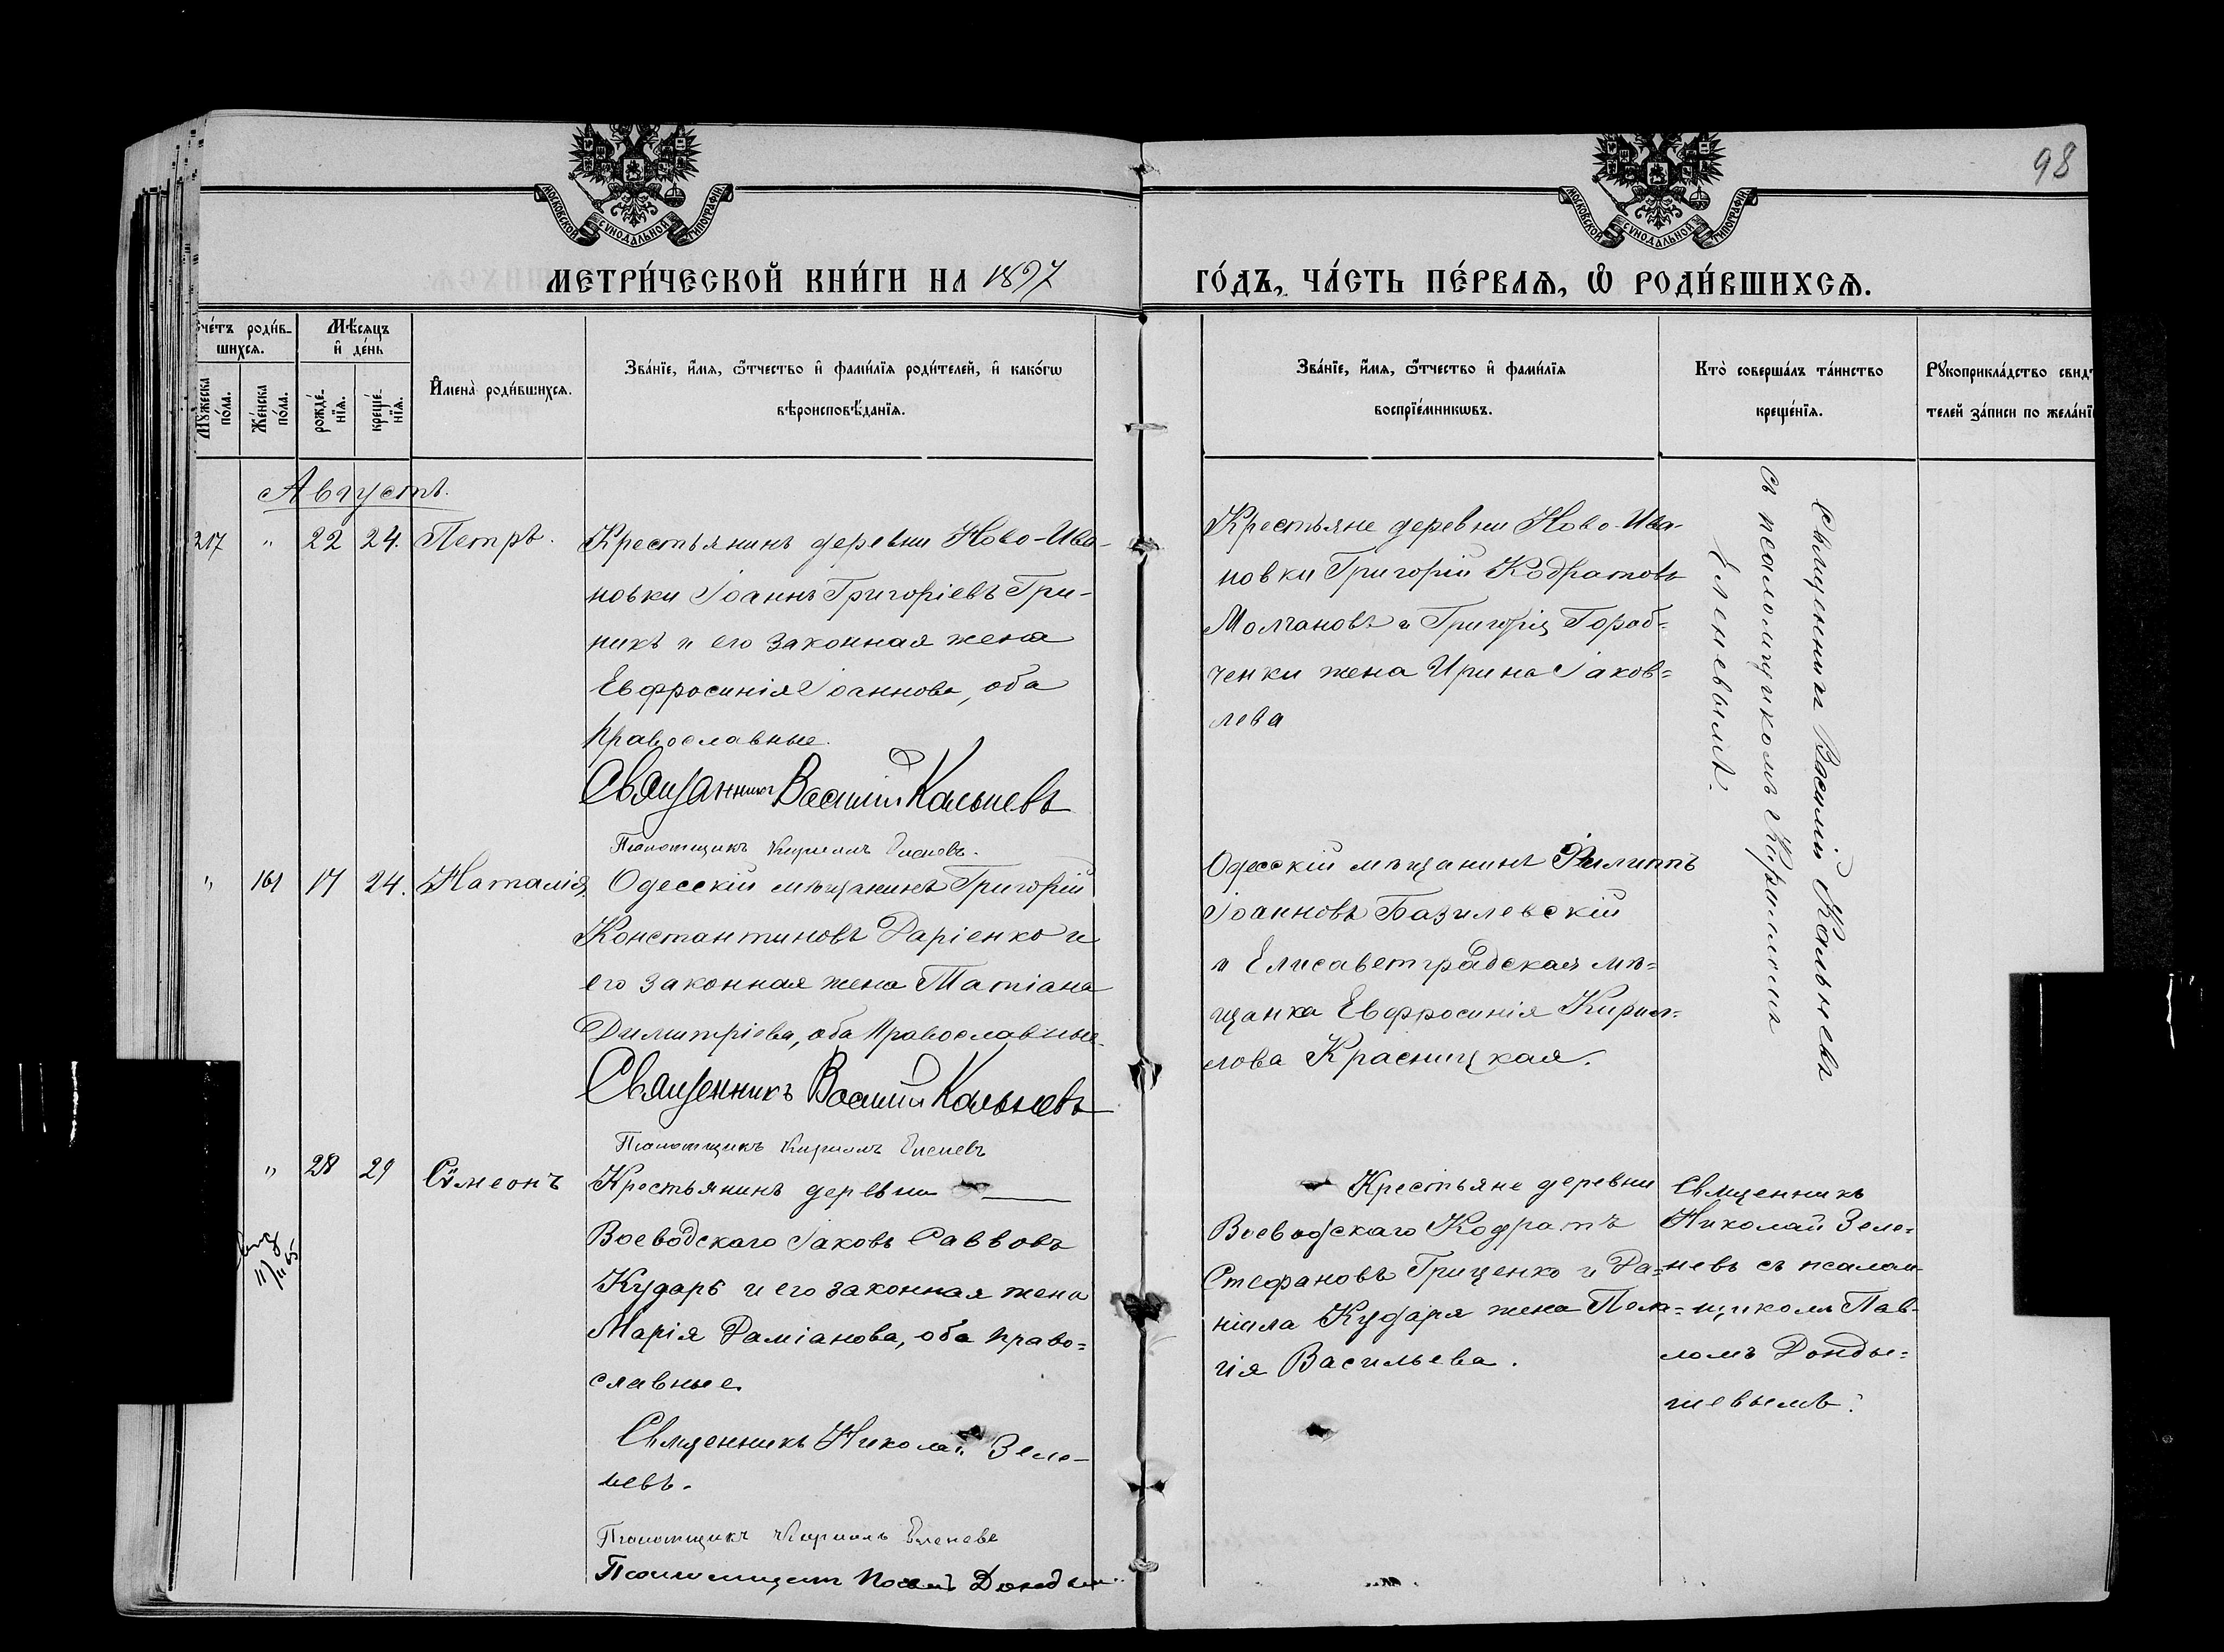 98
МОСКОВСКОЙ СѴНОДАЛЬНОЙ ТИПОГРАФІИ
МОСКОВСКОЙ СѴНОДАЛЬНОЙ ТИПОГРАФІИ
МЕТРИ́ЧЕСКОЙ КНИ́ГИ НА 1897
ГО́ДЪ, ЧА́СТЬ ПЕ́РВАѦ, Ѽ РОДИ́ВШИХСѦ.
Сче́тъ роди́в-
шихсѧ.
Мѣ́сѧцъ
и҆ де́нь
Мꙋ́жеска
по́ла.
Же́нска
по́ла.
рожде́-
нїѧ.
креще́-
нїѧ.
И҆мена̀ роди́вшихсѧ.
Зва́нїе, и҆́мѧ, ѻ҆́тчество и҆ фами́лїѧ роди́телей, и҆ како́гѡ
вѣроисповѣ́данїѧ.
Зва́нїе, и҆́мѧ, ѻ҆́тчество и҆ фами́лїѧ
воспрїе́мникѡвъ.
Кто̀ соверша́лъ та́инство
креще́нїѧ.
Рꙋкоприкла́дство свидѣ
телей за́писи по жела́нї
Августъ.
217 " 22 24. Петръ.
Крестьянинъ деревни Ново-Ива-
новки Іоаннъ Григоріевъ Гри-
никъ и его законная жена
Евфросинія Іоаннова, оба
православные.
Священникъ Василій Кальневъ
Псаломщикъ Кириллъ Еленевъ.
Крестьяне деревни Ново-Ива-
новки Григорій Кодратовъ
Молчановъ и Григорія Гороб-
ченки жена Ирина Іаков-
лева
Священникъ Василій Кальневъ
съ псаломщикомъ Кирилломъ
Еленевымъ.
" 161 17 24. Наталія.
Одесскій мѣщанинъ Григорій
Константиновъ Даріенко и
его законная жена Татіана
Димитріева, оба православные.
Священникъ Василій Кальневъ
Псаломщикъ Кириллъ Еленевъ
Одесскій мѣщанинъ Филиппъ
Іоанновъ Базилевскій
и Елисаветградская мѣ-
щанка Евфросинія Кирил-
лова Красницкая.
" 28 29 Сѵмеонъ
Крестьянинъ деревни
Воеводскаго Іаковъ Саввовъ
Кударь и его законная жена
Марія Даміанова, оба право-
славные.
Священникъ Николай Зеле-
невъ.
Псаломщикъ Кириллъ Еленевъ
Псаломщикъ Павелъ
Крестьяне деревни
Воеводскаго Кодратъ
Стефановъ Гриценко и Да-
ніила Кударя жена Пела-
гія Васильева.
Священникъ
Николай Зеле-
невъ съ псалом-
щикомъ Пав-
ломъ Донды-
шевымъ.